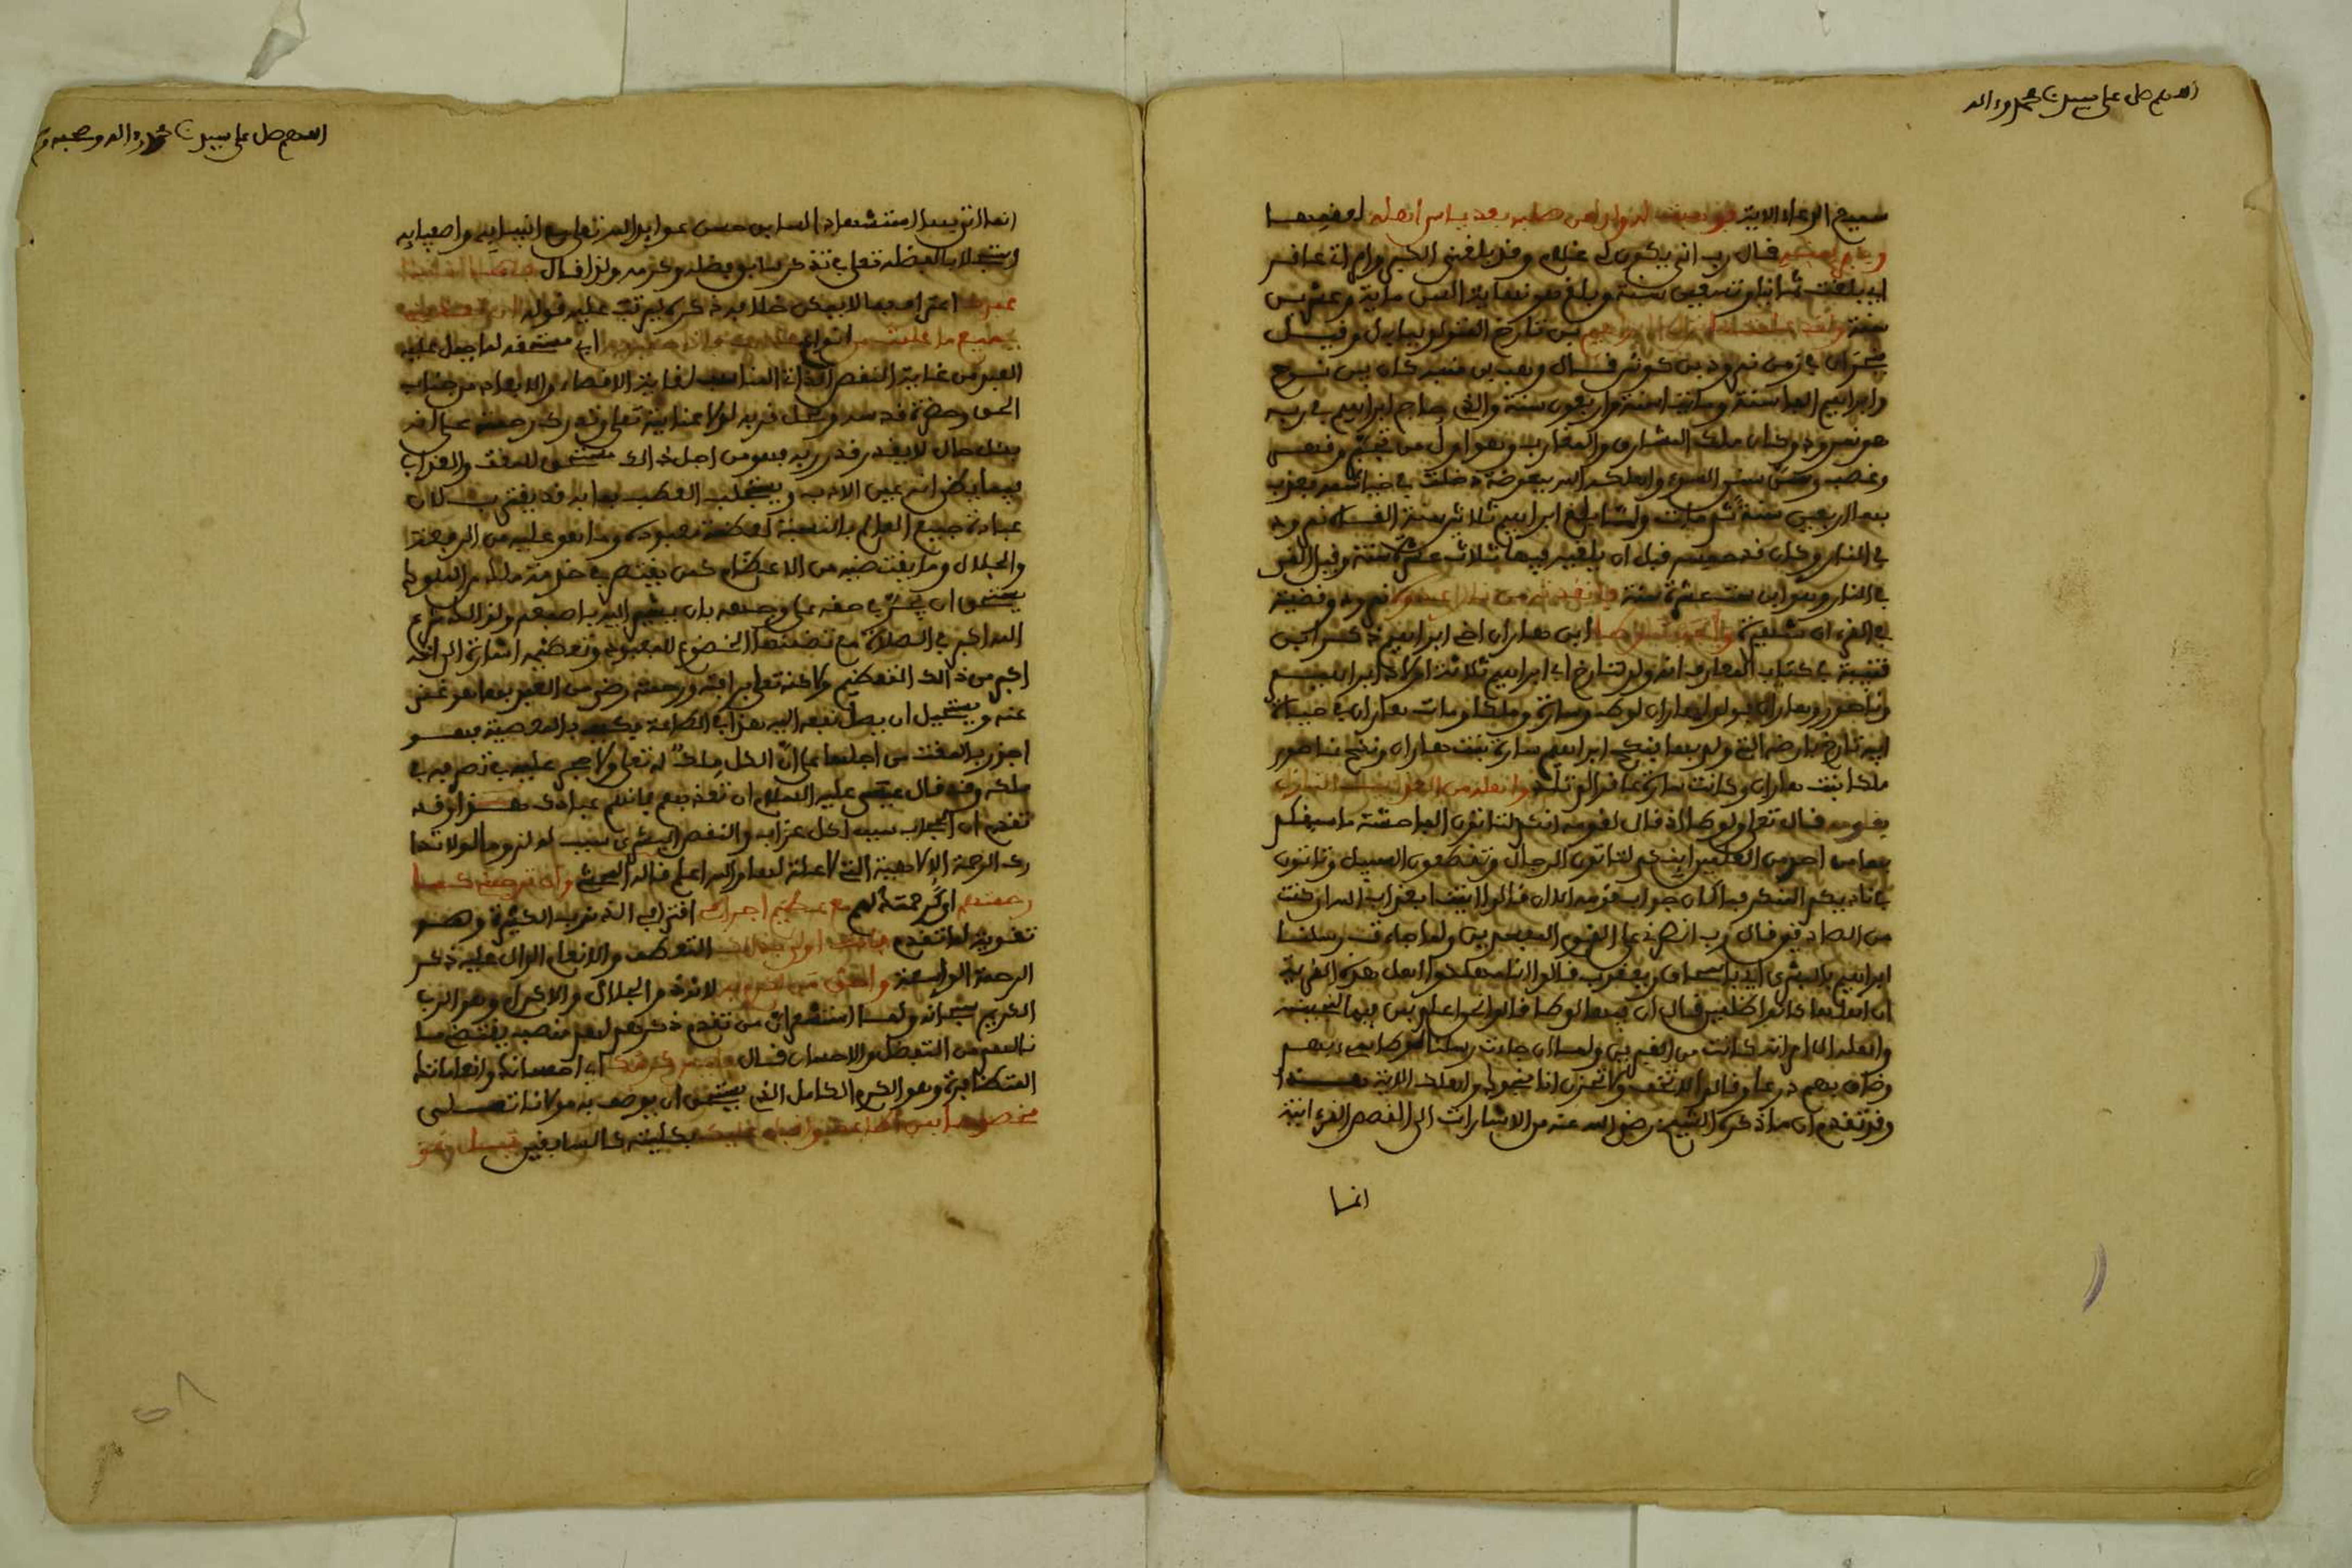 اللهم صل على سيدنا محمد واله
سميع الدعاء الاية فوهبت له من صلبه بعد ياس اهله
فقال رب انى يكون لى غلام وقد بلغني الكبر وامراته عاقر
اي بلغت ثمانيا وتسعين سنة وبلغ هو نهاية السن ماية وعشرين
سنة بن تارخ المولود ببابل وقيل
بحران في زمن نمرود بن كوش قال وهب بن منبه كان بين نوح
وابراهيم الفا سنة وماتا سنة واربعون سنة والذي حاج ابراهيم في ربه
هو نمرود وكان ملك المشارق والمغارب وهو اول من تجبر وقهر
وغصب وسن سنن السوء واهلكه الله ببعوضة دخلت في خياشمه فعذب
بها اربعين سنة ثم مات ولما بلغ ابراهيم ثلاثين سنة القاه نمرود
في النار وكان قد حبسه قبل ان يلقيه فيها ثلاث عشرة سنة وقيل القي
في النار وهو ابن ست عشرة سنة فانقذته من نار نمرود وقضيته
في القرءان شهيرة وانجيت لوطا ابن هاران اخي ابراهيم ذكر ابن
قتيبة في كتاب المعارف انه ولد لتارخ ابي ابراهيم ثلاثة اولاد ابراهيم
وناحور وهاران فولد لهاران لوط وسارة وملكا ومات هاران في حياة
ابيه تارخ بارضه التي ولد بها فنكح ابراهيم سارة بنت هاران ونكح ناحور
ملكا بنت هاران وكانت سارة عاقرا لم تلد واهله من العذاب النازل
بقومه قال تعلى ولوطا اذ قال لقومه انكم لتاتون الفاحشة ما سبقكم
بها من احد من العلمين اينكم لتاتون الرجال وتقطعون السبيل وتاتون
في ناديكم المنكر فما كان جواب قومه الا ان قالوا ايتنا بعذاب الله ان كنت
من الصادقين قال رب انصرني على القوم المفسدين ولما جاءت رسلنا
ابراهيم بالبشرى اي باسحاق ويعقوب قالوا انا مهلكوا اهل هذه القرية
ان اهلها كانوا ظلمين قال ان فيها لوطا قالوا نحن اعلم بمن فيها لننجينه
واهله الا امراته كانت من الغبرين ولما ان جاءت رسلنا لوطا سيء بهم
وضاق بهم ذرعا وقالوا لا تخف ولا تحزن انا منجوك واهلك الاية
وقد تقدم ان ما ذكره الشيخ رضي الله عنه من الاشارات الى القصص القرءانية
انما
اللهم صل على سيدنا محمد واله وصحبه وسلم
انما اتى بها استشهادا لما بين من حسن عوايد الله تعلى مع انبيايه واصفيايه
واستجلابا لفضله تعلى بتذكر سابق فضله وكرمه ولذا قال
اعتراف بما لا يمكن خلافه ذكره ليرتب عليه قوله
بجميع ما عليته من انواع اي مستحقه لما جبل عليه
العبد من غاية النقص الذاتي المناسب لغاية الاقصاء والابعاد من جناب
الحق وحضرة قدسه ومحل قربه لولا عنايته تعلى وتدارك رحمته على انه
بكل حال لا يقدر قدر ربه فهو من اجل ذلك مستحق للمقت والعذاب
فيما يظن انه عين الادب ويستجلب العطب بما به قد يتقرب لان
عبادة جميع العوالم بالنسبة لعظمة معبوده وما هو عليه من الرفعة
والجلال وما يقتضيه من الاعظام كمن يقتصر في خدمة ملك من الملوك
يستحق ان يخر في حقه على وجهه بان يشير اليه باصبعه ولذلك شرع
الله اكبر في الصلاة مع تضمنها الخضوع للمعبود وتعظيمه اشارة الى انه
اكبر من ذلك التعظيم ولاكنه تعلى برافته ورحمته رضي من العبد بما هو غني
عنه ويستحيل ان يصل نفعه اليه هذا في الطاعة فكيف بالمعصية فهو
اجدر بالمقت من اجلها على ان الكل ملك له تعلى ولا حجر عليه في تصرفه في
ملكه وقد قال عيسى عليه السلام ان تعذبهم فانهم عبادك هذا وقد
تقدم ان الحجاب سبب لكل عذاب والنقص البشري سبب له لزوما لولا تدا
رك الرحمة الالاهية التي لا علة لها والله اعلم قاله الشيخ وان ترحمه كما
رحمتهم اي رحمتك لهم مع عظيم اجرامه اقتراف الذنوب الكثيرة وهو
تقوية لما تقدم فانت اولى بذلك التعطف والانعام الدال عليه ذكر
الرحمة الواسعة واحق من اكرم به لانك ذو الجلال والاكرام وهو الرب
الكريم سبحانه ولما استشعر ان من تقدم ذكرهم لهم منصب يقتضي ما
نالهم من التفضل والاحسان قال فليس كرمك اي احسانك وانعاماتك
المتكاثرة وهو الكرم الكامل الذي يستحق ان يوصف به مولانا تعلى
مخصوصا بمن اطاعك واقبل عليك بكليته كالسابقين بل هو